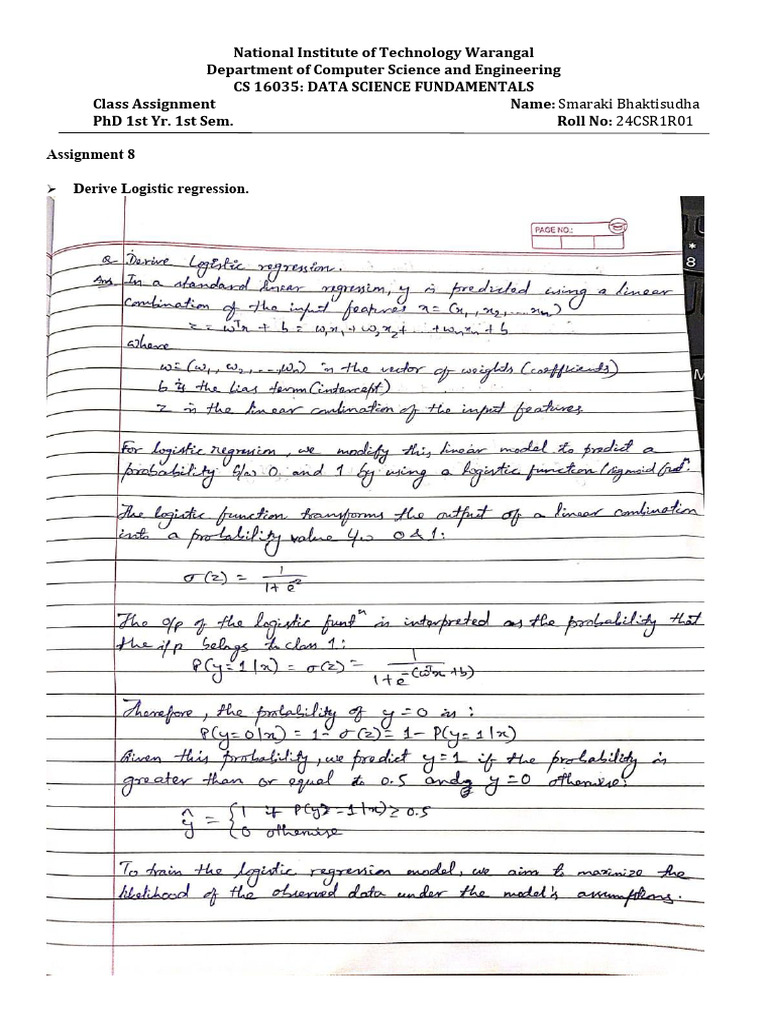 National Institute of Technology Warangal
Department of Computer Science and Engineering
CS 16035: DATA SCIENCE FUNDAMENTALS
Class Assignment Name: Smaraki Bhaktisudha
PhD 1st Yr. 1st Sem. Roll No: 24CSR1R01
Assignment 8
➢ Derive Logistic regression.
PAGE NO.:
*
8
M
Q Derive Logistic regression.
Ans. In a standard linear regression, y is predicted using a linear
combination of the input features x = (x₁, x₂, ... xn)
z = wᵀx + b = w₁x₁ + w₂x₂ + ... + wnxn + b
where
w = (w₁, w₂, ..., wn) is the vector of weights (coefficients)
b is the bias term (intercept)
z is the linear combination of the input features
For logistic regression, we modify this linear model to predict a
probability b/w 0 and 1 by using a logistic function (sigmoid funⁿ.
The logistic function transforms the output of a linear combination
into a probability value b/w 0 & 1:
σ(z) = 1 / (1 + e⁻ᶻ)
The o/p of the logistic funtⁿ is interpreted as the probability that
the i/p belngs to class 1:
P(y=1|x) = σ(z) = 1 / (1 + e^-(wᵀx + b))
Therefore, the probability of y=0 is:
P(y=0|x) = 1 - σ(z) = 1 - P(y=1|x)
Given this probability, we predict y=1 if the probability is
greater than or equal to 0.5 and y=0 otherwise:
ŷ = { 1 if P(y=1|x) ≥ 0.5
0 otherwise
To train the logistic regression model, we aim to maximize the
likelihood of the observed data under the model's assumptions.